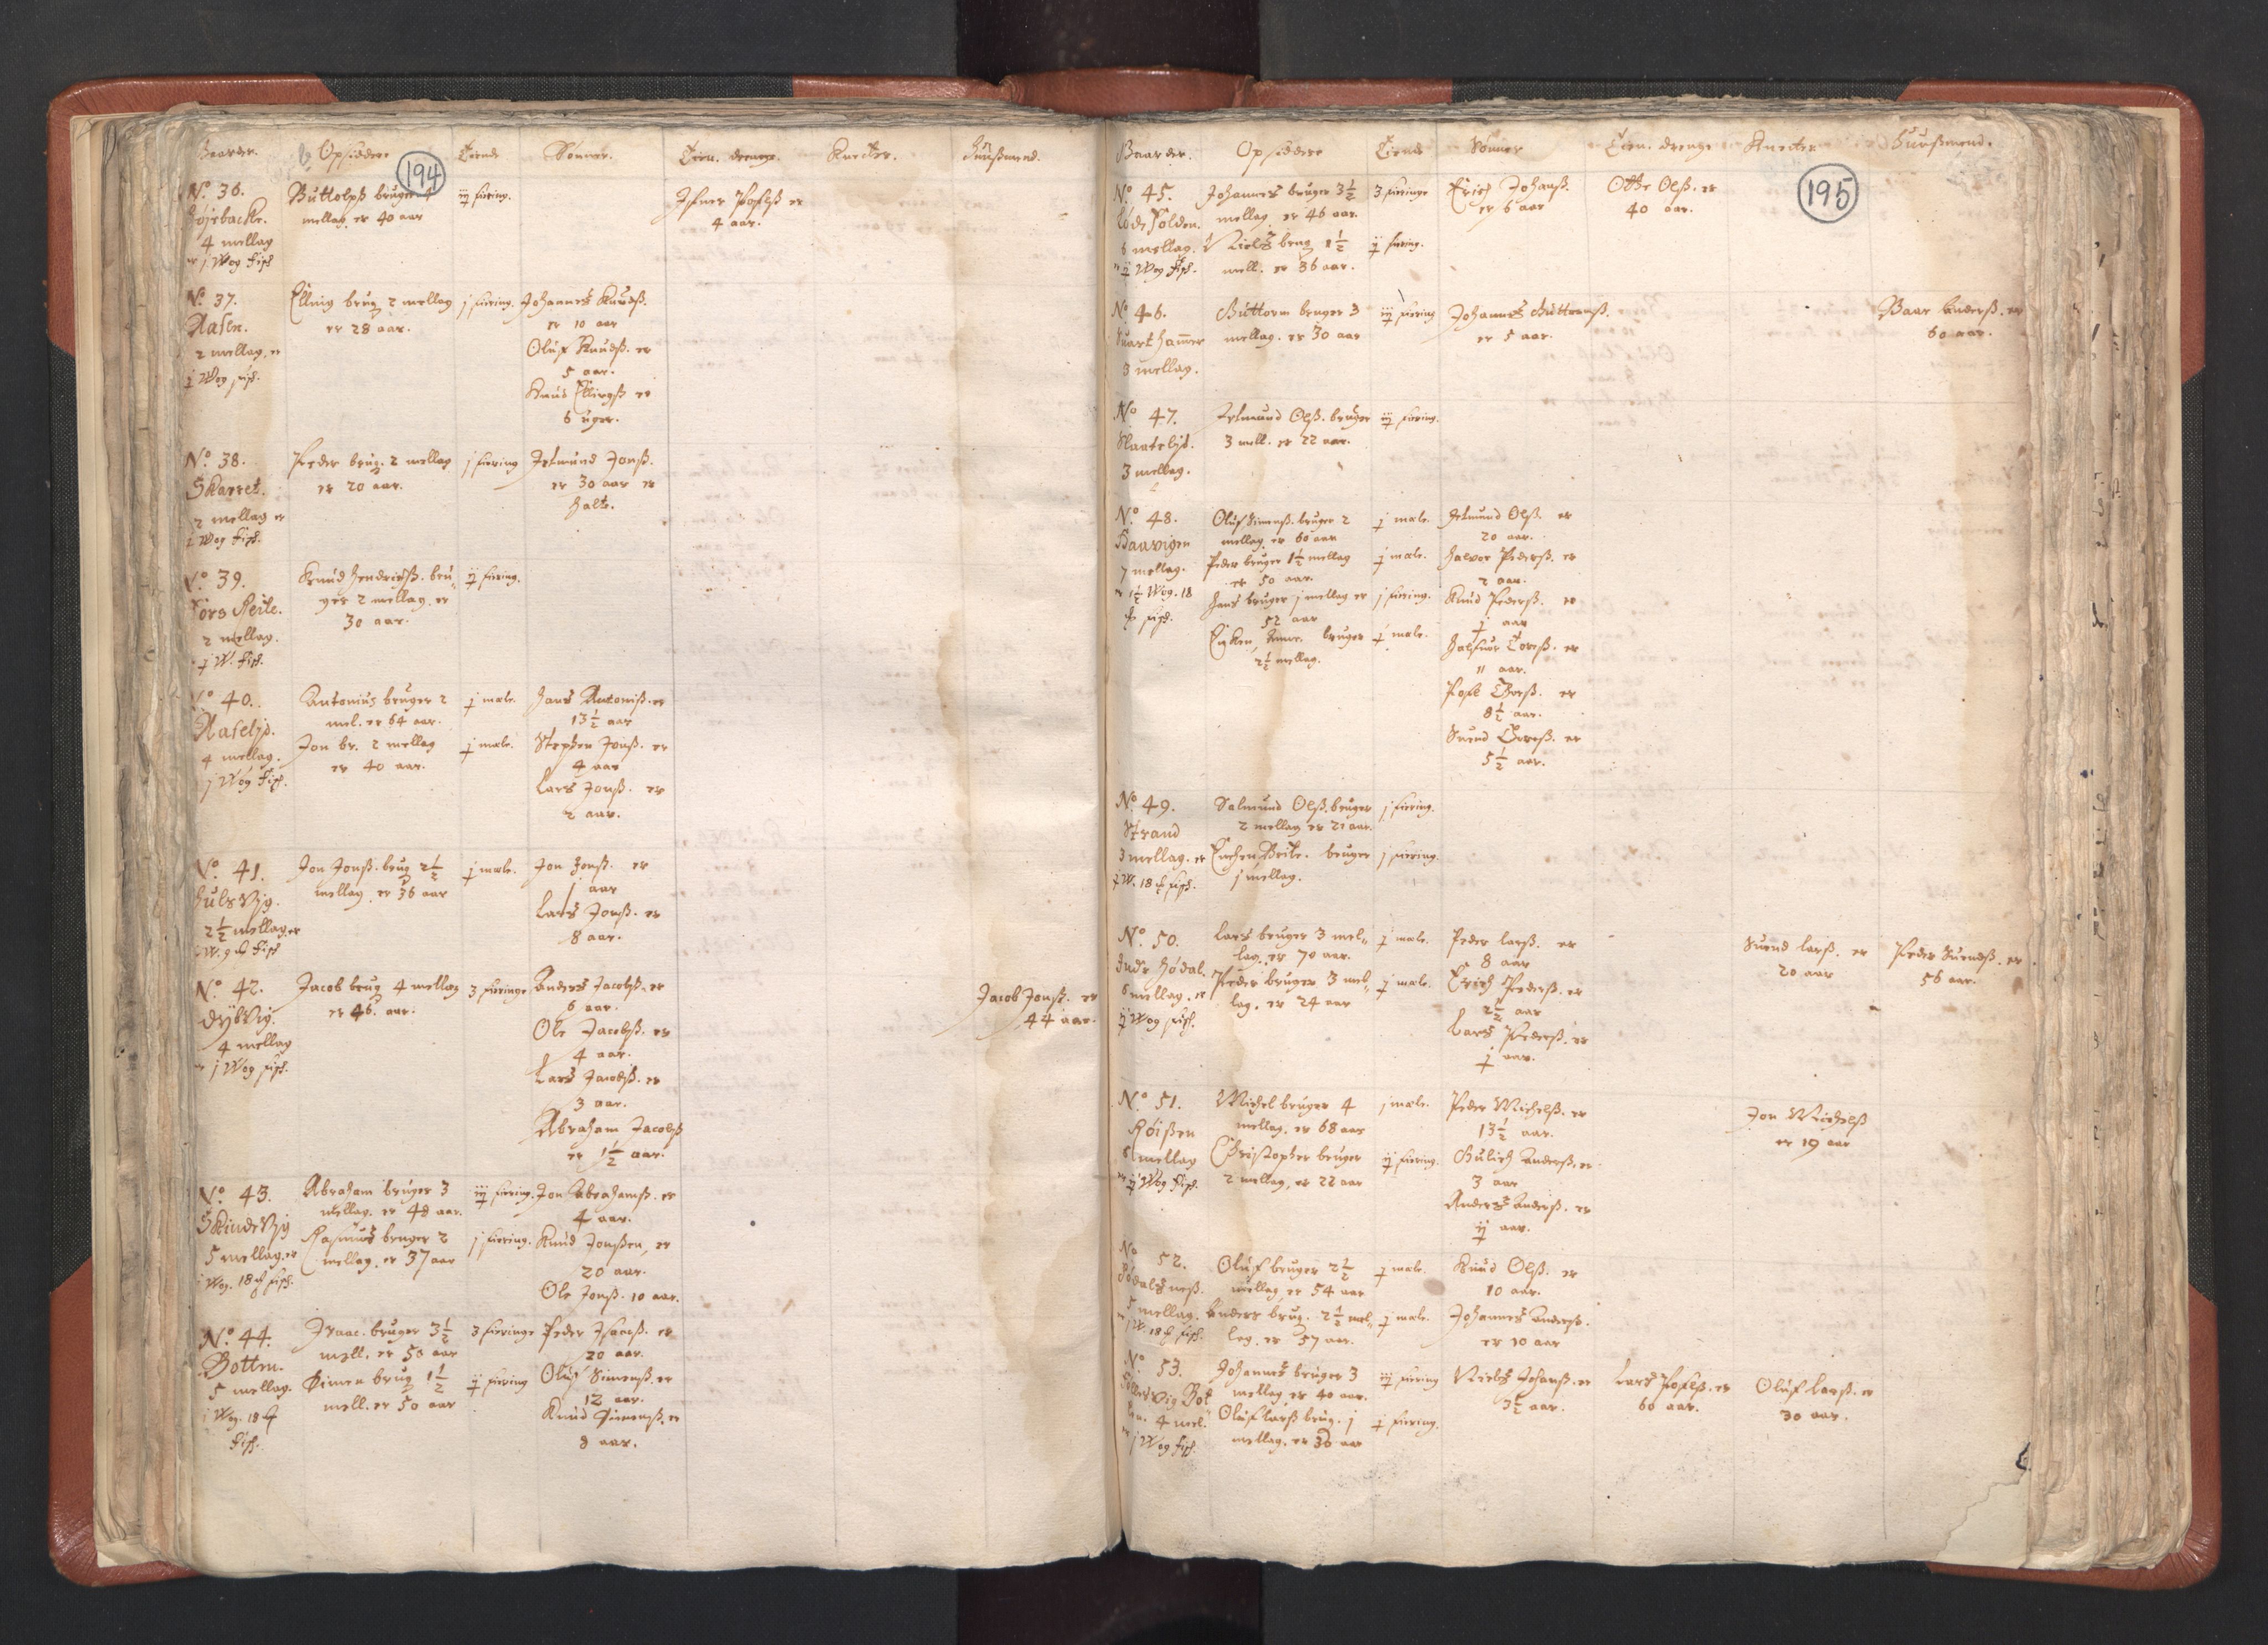 194
Gaarder. Opsiddere Tiende Sønner. Tien. drenge. Knecter. Huußmend.
No. 36.
Højebacke.
4 mellag
er j Wog Fisch
Guttolph bruger 4
mellag. er 40 aar
iij fiering.
Ifuer Pofelß er
4 aar.
No. 37.
Aasen.
2 mellag. er
Wog fisch.
Elling brug. 2 mellag
er 28 aar.
j fiering.
Johannes Knudß.
er 10 aar
Oluf Knudß. er
5 aar.
Knud Ellingß er
6 uger.
No. 38.
Skarret.
2 mellag er
Wog Fisch.
Peder brug. 2 mellag
er 20 aar.
j fiering
Jetmund Jonß.
er 30 aar er
halte.
No. 39.
2 mellag.
W. Fisch.
Knud Hendrichß. bru-
ger 2 mellag. er
30 aar.
ij fiering.
No. 40.
Aaselid.
4 mellag.
j Wog Fisch.
Antonius bruger 2
mel. er 64 aar.
Jon br. 2 mellag
er 40 aar.
j male.
j male.
Hans Antoniß. er
13½ aar
Stephen Jonß. er
4 aar
Lars Jonß. er
2 aar.
No. 41.
2½ mellag. er
Jon Jonß. brug 2½
mellag. er 36 aar
j male.
Jon Jonß. er
j aar
Lars Jonß. er
8 aar.
No. 42.
Dybvig.
4 mellag
er j Wog fisch.
Jacob brug 4 mellag
er 46. aar.
3 fieringe
Anders Jacobß. er
6 aar.
Ole Jacobß. er
4 aar.
Lars Jacobß. er
3 aar.
Abraham Jacobß
er 1½ aar.
Jacob Jonß. er
44 aar.
No. 43.
Skindevig
5 mellag. er
Wog. 18 fisch.
Abraham bruger 3
mellag. er 48 aar.
Rasmus bruger 2
mellag. er 37 aar
iij fiering.
j fiering.
Jon Abrahamß. er
4 aar.
Knud Jonßen, er
20 aar.
Ole Jonß. 10 aar.
No. 44.
Botten.
5 mellag.
j Wog. 18
Fisch.
Isaac. bruger 3½
mell. er 50 aar
Simen brug 1½
mell. er 50 aar
3 fieringe
ij fiering
Peder Isaacß. er
20 aar.
Oluf Simenß. er
12 aar.
Knud Simenß. er
8 aar.
195
Gaarder. Opsiddere Tiende Sønner Tien. drenge Knecter Huußmend.
No. 45.
6 mellag.
er ij Wog Fisch.
Johannes bruger 3½
mellag er 46 aar.
Nielß brug 1½
mell. er 36 aar.
3 fieringe
ij fiering.
Erich Johanß.
er 6 aar
Othe Olß. er
40 aar.
No. 46.
Suarthammer
3 mellag.
Guttorm bruger 3
mellag. er 30 aar
iij fiering
Johannes Guttormß.
er 5 aar.
Baar Anderß. er
60 aar.
No 47.
Slaatelid.
3 mellag.
Jetmund Olß. bruger
3 mell. er 22 aar.
iij fiering.
No. 48.
7 mellag.
er 1½ Wog. 18
fisch.
Oluf Simenß. bruger 2
mellag er 60 aar
Peder bruger 1½ mellag
er 50 aar.
Hans bruger j mellag er
52 aar
Encken, bruger
2½ mellag.
j male.
j male.
j fiering.
j male.
Jetmund Olß. er
20 aar.
Halvor Pederß. er
2 aar.
Knud Pederß. er
j aar
Halfuor Toreß. er
11 aar.
Pofel Toreß. er
8½ aar.
Suend Toreß. er
5½ aar.
No. 49.
Strand
3 mellag. er
W. 18 fisch.
Salmund Olß. bruger
2 mellag er 21 aar.
Enchen Brite. bruger
j mellag.
j fiering.
j fiering.
No. 50.
Indr Hódal.
6 mellag. er
ij Wog fisch.
Lars bruger 3 mel-
lag. er 70 aar.
Peder bruger 3 mel-
lag. er 24 aar
j male.
j male.
Peder Larß. er
8 aar
Erich Pederß. er
2½ aar
Lars Pederß. er
j aar.
Suend Larß. er
20 aar
Peder Suendß. er
56 aar.
No. 51.
Røißen
6 mellag
er ij Wog Fisch.
Michel bruger 4
mellag. er 68 aar
Christopher bruger
2 mellag, er 22 aar
j male.
ij fiering.
Peder Michelß. er
13½ aar.
Gulich Anderß. er
3 aar
Anders Anderß. er
ij aar.
Jon Michelß
er 19 aar
No 52.
5 mellag.
18 fisch.
Oluf bruger 2½
mellag er 54 aar
Anders brug. 2½ mel-
lag. er 57 aar.
j male.
j male.
Knud Olß. er
10 aar.
Johannes Anderß.
er 10 aar
No. 53.
4 mel.
er j Wog Fisch.
Johannes bruger 3
mellag er 40 aar.
Oluf Larß brug. j
mellag. er 30 aar
iij fiering
j fiering.
Niels Johanß. er
3½ aar.
Lars Pofelß. er
60 aar.
Oluf Larß. er
30 aar.